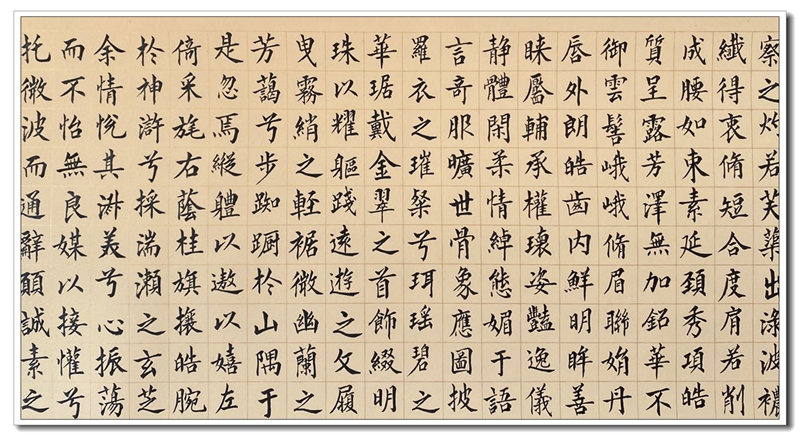 察之灼若芙蕖出淥波襛
纖得衷脩短合度肩若削
成腰如束素延頸秀項皓
質呈露芳澤無加鉛華不
御雲髻峨峨脩眉聯娟丹
唇外朗皓齒內鮮明眸善
睞靨輔承權瓌姿豔逸儀
靜體閑柔情綽態媚于語
言奇服曠世骨象應圖披
羅衣之璀粲兮珥瑤碧之
華琚戴金翠之首飾綴明
珠以耀軀踐遠遊之文履
曳霧綃之輕裾微幽蘭之
芳藹兮步踟躕於山隅于
是忽焉縱軆以遨以嬉左
倚采旄右蔭桂旗攘皓腕
於神滸兮採湍瀨之玄芝
余情悅其淑美兮心振蕩
而不怡無良媒以接懽兮
托微波而通辭願誠素之